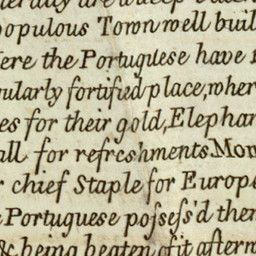 populous Town well buil
ere the Portuguese have
ularly fortified place, wher
es for their gold, Elephan
all for refreshments. Mom
r chief Staple for Europe
Portuguese poſseſs'd them
& being beaten of it afterw